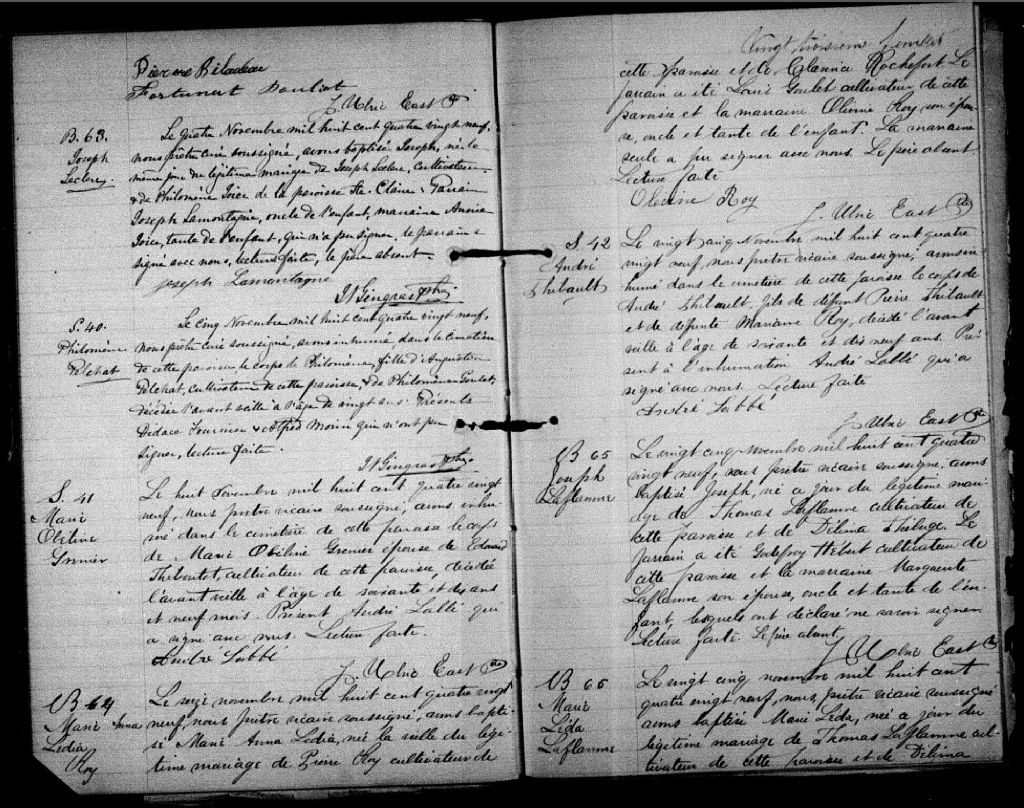 Pierre Bilodeau
Fortunat Pouliot
J. Ulric East Ptre
B. 63.
Joseph
Leclerc
Le quatre Novembre mil huit cent quatre vingt neuf,
nous prêtre curé soussigné, avons baptisé Joseph, né le
même jour du légitime mariage de Joseph Leclerc, cultivateur
& de Philomène Joice de la paroisse Ste Claire. Parrain
Joseph Lamontagne, oncle de l'enfant, marraine Annie
Joice, tante de l'enfant, qui n'a pu signer. le parrain a
signé avec nous, lecture faite, le père absent.
Joseph Lamontagne
JN Gingras Ptre
S. 40.
Philomène
Pelchat
Le cinq Novembre mil huit cent quatre vingt neuf,
nous prêtre curé soussigné, avons inhumé, dans le cimetière
de cette paroisse, le corps de Philomène, fille d'Augustin
Pelchat, cultivateur de cette paroisse, & de Philomène Goulet,
décédée l'avant veille à l'âge de vingt ans. Présents
Didace Fournier & Alfred Morin qui n'ont pu
signer, lecture faite.
JN Gingras Ptre
S. 41
Marie
Obéline
Grenier
Le huit Novembre mil huit cent quatre vingt
neuf, nous prêtre vicaire soussigné, avons inhu-
mé dans le cimetière de cette paroisse le corps
de Marie Obéline Grenier épouse de Edouard
Thiboutot, cultivateur de cette paroisse, décédée
l'avant veille à l'âge de soixante et dix ans
et neuf mois. Présent André Labbé qui
a signé avec nous. Lecture faite.
André Labbé
J. Ulric East Ptre
B 64
Marie Anna
Lédia
Roy
Le seize novembre mil huit cent quatre vingt
neuf, nous prêtre vicaire soussigné, avons bapti-
sé Marie Anna Lédia, née la veille du légi-
time mariage de Pierre Roy cultivateur de
Vingt troisième feuillet
cette paroisse et de Clarina Rochefort. Le
parrain a été Louis Goulet cultivateur de cette
paroisse et la marraine Olivine Roy son épou-
se, oncle et tante de l'enfant. La marraine
seule a pu signer avec nous. Le père absent
Lecture faite
Olivine Roy
J. Ulric East Ptre
S 42
André
Thibault
Le vingt cinq Novembre mil huit cent quatre
vingt neuf, nous prêtre vicaire soussigné, avons in-
humé dans le cimetière de cette paroisse le corps de
André Thibault, fils de défunt Pierre Thibault
et de défunte Mariane Roy, décédé l'avant
veille à l'âge de soixante et dix neuf ans. Pré-
sent à l'inhumation André Labbé qui a
signé avec nous. Lecture faite
André Labbé
J. Ulric East Ptre
B 65
Joseph
Laflamme
Le vingt cinq Novembre mil huit cent quatre
vingt neuf, nous prêtre vicaire soussigné, avons
baptisé Joseph, né ce jour du légitime mari-
age de Thomas Laflamme cultivateur de
cette paroisse et de Délima Théberge. Le
parrain a été Godefroy Hébert cultivateur de
cette paroisse et la marraine Marguerite
Laflamme son épouse, oncle et tante de l'en-
fant, lesquels ont déclaré ne savoir signer.
Lecture faite. Le père absent.
J. Ulric East Ptre
B 66
Marie
Léda
Laflamme
Le vingt cinq novembre mil huit cent
quatre vingt neuf, nous, prêtre vicaire soussigné
avons baptisé Marie Léda, née ce jour du
légitime mariage de Thomas Laflamme cul-
tivateur de cette paroisse et de Délima